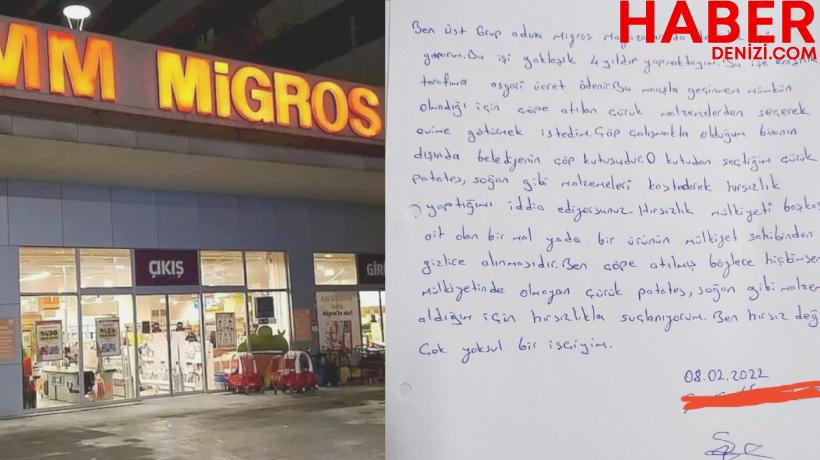 MM MiGROS
ÇIKIŞ
GİRİ
HABER
DENİZİ.COM
Ben Üst Grup adına Migros
yaparım. Bu işi yaklaşık 4 yıldır yapmaktayım. Bu işe
tarafıma asgari ücret ödenir. Bu maaşla geçinmem mümkün
olmadığı için çöpe atılan çürük malzemelerden seçerek
evime götürmek istedim. Çöp çalışmakla olduğum binanın
dışında belediyenin çöp kutusudur. O kutudan seçtiğim çürük
patates, soğan gibi malzemeleri kastederek hırsızlık
yaptığımı iddia ediyorsunuz. Hırsızlık mülkiyeti başkas
ait olan bir mal yada bir ürünün mülkiyet sahibinden
gizlice alınmasıdır. Ben çöpe atılmış böylece hiçkimsen
mülkiyetinde olmayan çürük patates, soğan gibi malzem
aldığım için hırsızlıkla suçlanıyorum. Ben hırsız değ
Çok yoksul bir işçiyim.
08.02.2022